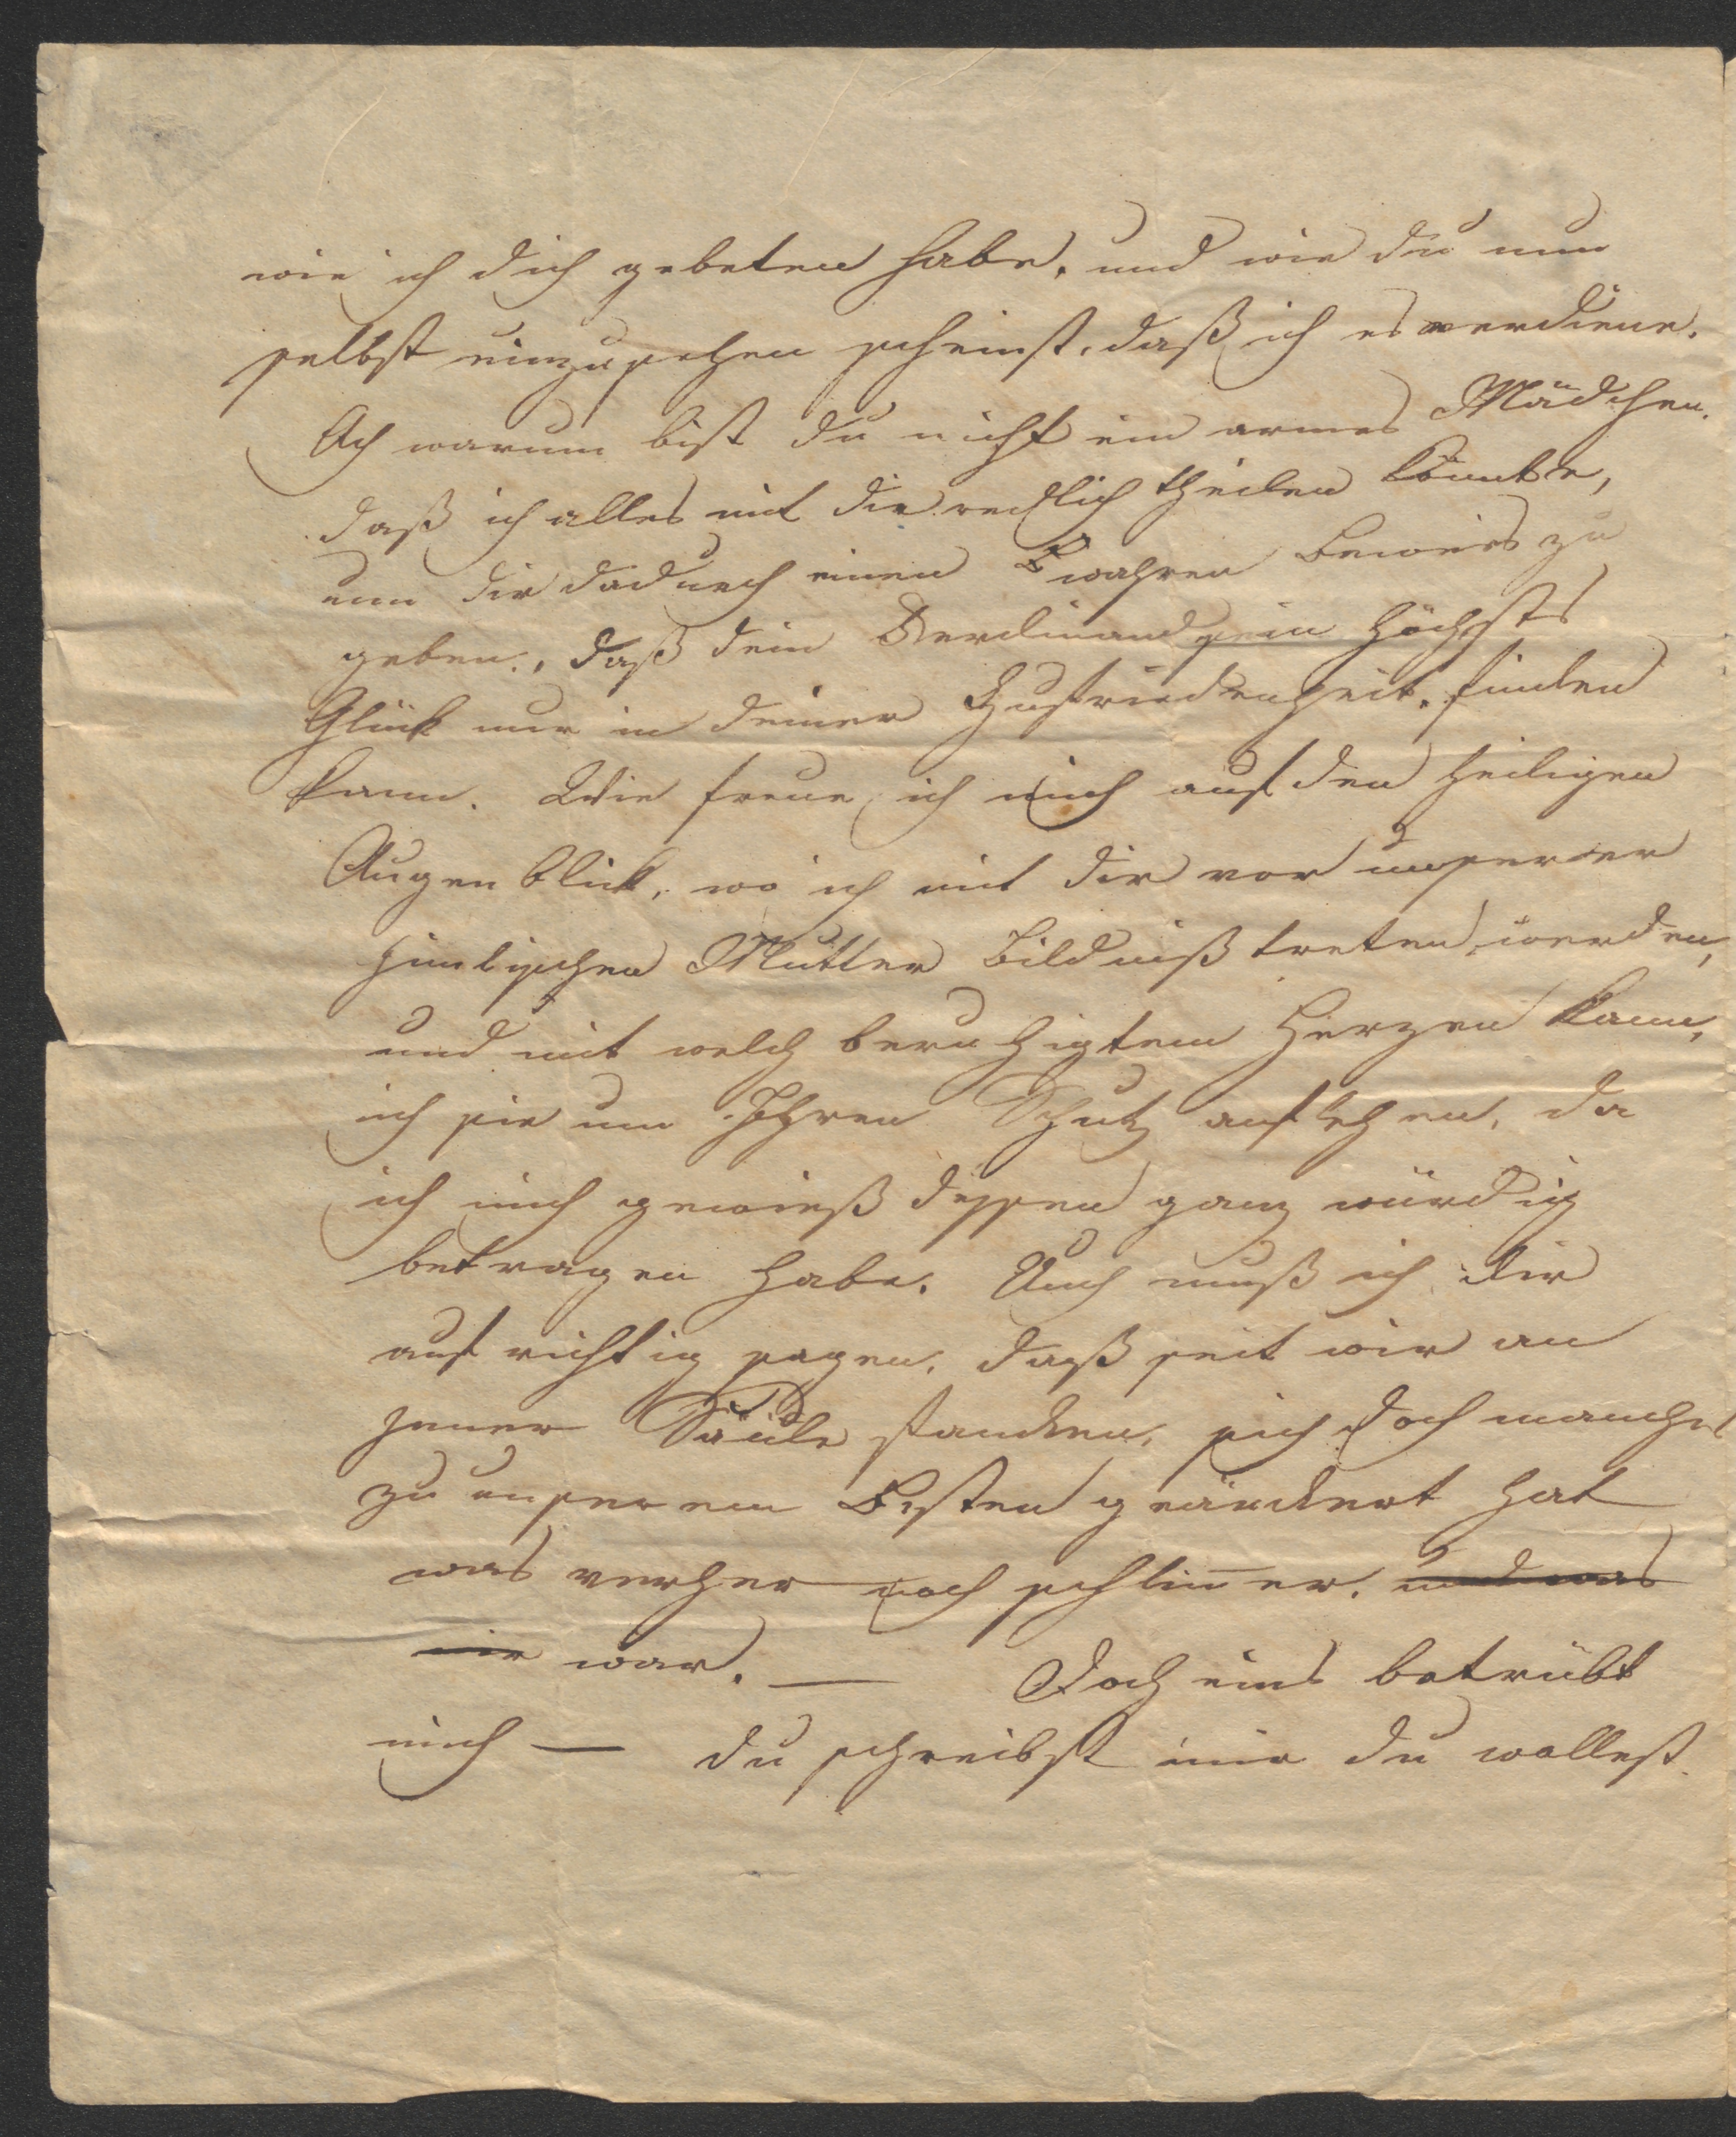 wie ich dich gebeten habe, und wie du nun
selbst einzusehen scheinst, daß ich es verdiene.
Ach warum bist du nicht ein armes Mädchen.
daß ich alles mit dir redlich theilen könnte,
um dir dadurch einen wahren Beweis zu
geben, daß dein Ferdinand sein höchsts
Glück nur in deiner Zufriedenheit finden
kann. Wie freue ich mich auf den heiligen
Augenblick, wo ich mit dir vor unserer
himlischen Mutter Bildniß treten werden,
und mit welch beruhigtem Herzen kann,
ich sie um Ihren Schutz anflehen, da
ich mich gewieß dessen ganz würdig
betragen habe. Auch muß ich dir
aufrichtig sagen, daß seit wir an
jener Säule standen, sich doch manches
zu unserem Besten geändert hat
was vorher noch schlim̅er. und was
mir war. — Doch eins betrübt
mich — du schreibst mir du wollest